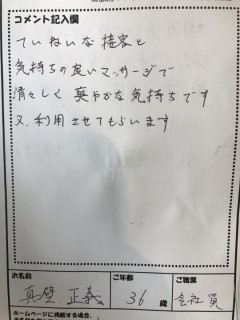 コメント記入欄
ていねいな接客と
気持ちの良いマッサージで
清々しく爽やかな気持ちです
又、利用させてもらいます
お名前
ご年齢
ご職業
真壁 正義
36歳
会社員
ホームページに掲載する場合、